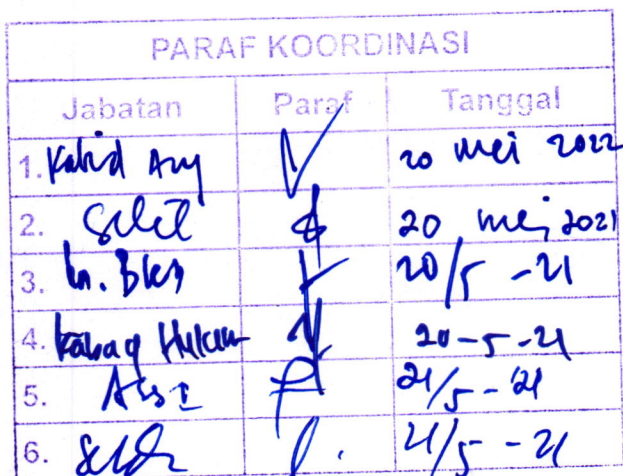 PARAF KOORDINASI
Jabatan Paraf Tanggal
1. Kabid Ang 20 Mei 2022
2. 20 Mei 2021
3. 20/5 - 21
4. Kabag Hukum 20-5-21
5. Ass I 21/5 - 21
6. Sekda 21/5 - 21